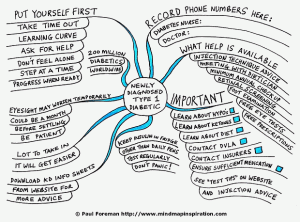 PUT YOURSELF FIRST
TAKE TIME OUT
LEARNING CURVE
ASK FOR HELP
DON'T FEEL ALONE
STEP AT A TIME
PROGRESS WHEN READY
200 MILLION
DIABETICS
WORLDWIDE
RECORD PHONE NUMBERS HERE:
DIABETES NURSE:
DOCTOR:
WHAT HELP IS AVAILABLE
INJECTION TECHNIQUE ADVICE
MEETING WITH DIETICIAN
RETINAL SCREENING
FREE PRESCRIPTIONS
NEWLY
DIAGNOSED
TYPE 1
DIABETIC
EYESIGHT MAY WORSEN TEMPORARILY
COULD BE A MONTH
BEFORE SETTLING
BE PATIENT
LOT TO TAKE IN
IT WILL GET EASIER
DOWNLOAD KD INFO SHEETS
FROM WEBSITE FOR
MORE ADVICE
KEEP INSULIN IN FRIDGE
OTHER THAN DAILY PENS
TEST REGULARLY
DON'T PANIC!
IMPORTANT
LEARN ABOUT HYPO'S
LEARN ABOUT KETONES
LEARN ABOUT DIET
CONTACT DVLA
CONTACT INSURERS
ENSURE SUFFICIENT MEDICATION
SEE "TEST TIPS" ON WEBSITE
AND INJECTION ADVICE
© Paul Foreman http://www.mindmapinspiration.com